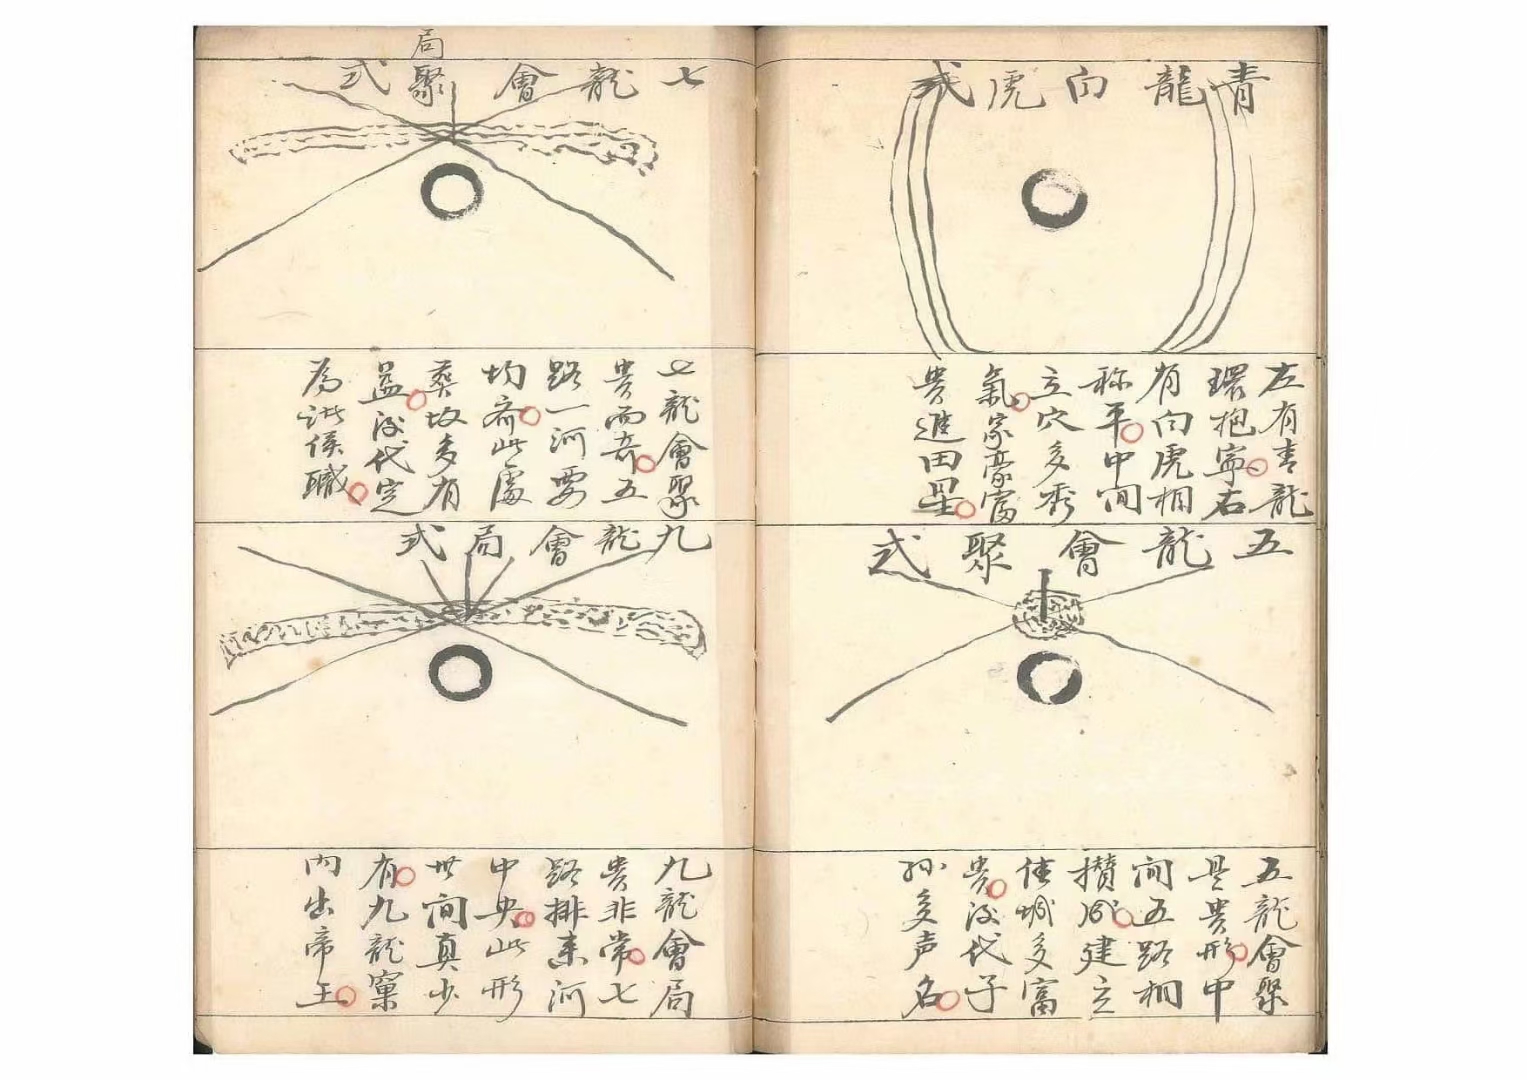 青龍向虎式
左有青龍
環抱寧右
有向虎相
称平中间
立穴多秀
氣家豪富
贵進田星
五龍會聚式
五龍會聚
是贵形中
间五路相
攅成建立
佳城多富
贵後代子
孙多声名
七龍會聚局式
七龍會聚
贵而奇五
路一河要
均斉此處
葵坟多有
益後代定
為诸侯職
九龍會局式
九龍會局
贵非常七
路排来河
中央此形
世间真少
有九龍窠
内出帝王